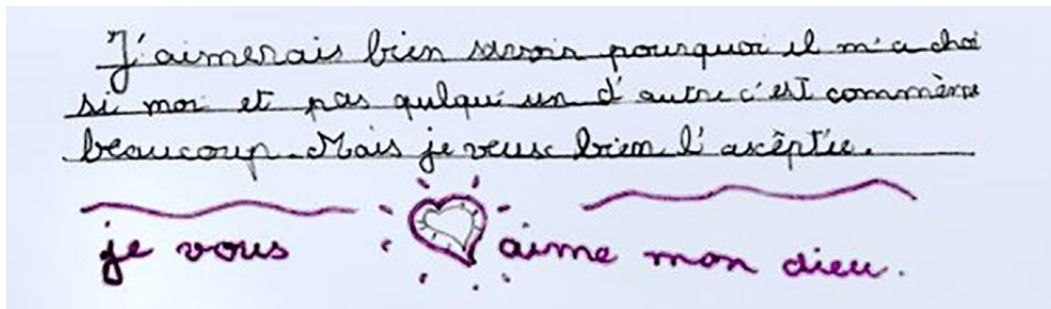 J'aimerais bien savoir pourquoi il m'a choi
si moi et pas qulqu'un d'autre c'est commème
beaucoup. Mais je veux bien l'axêptée.
je vous aime mon dieu.